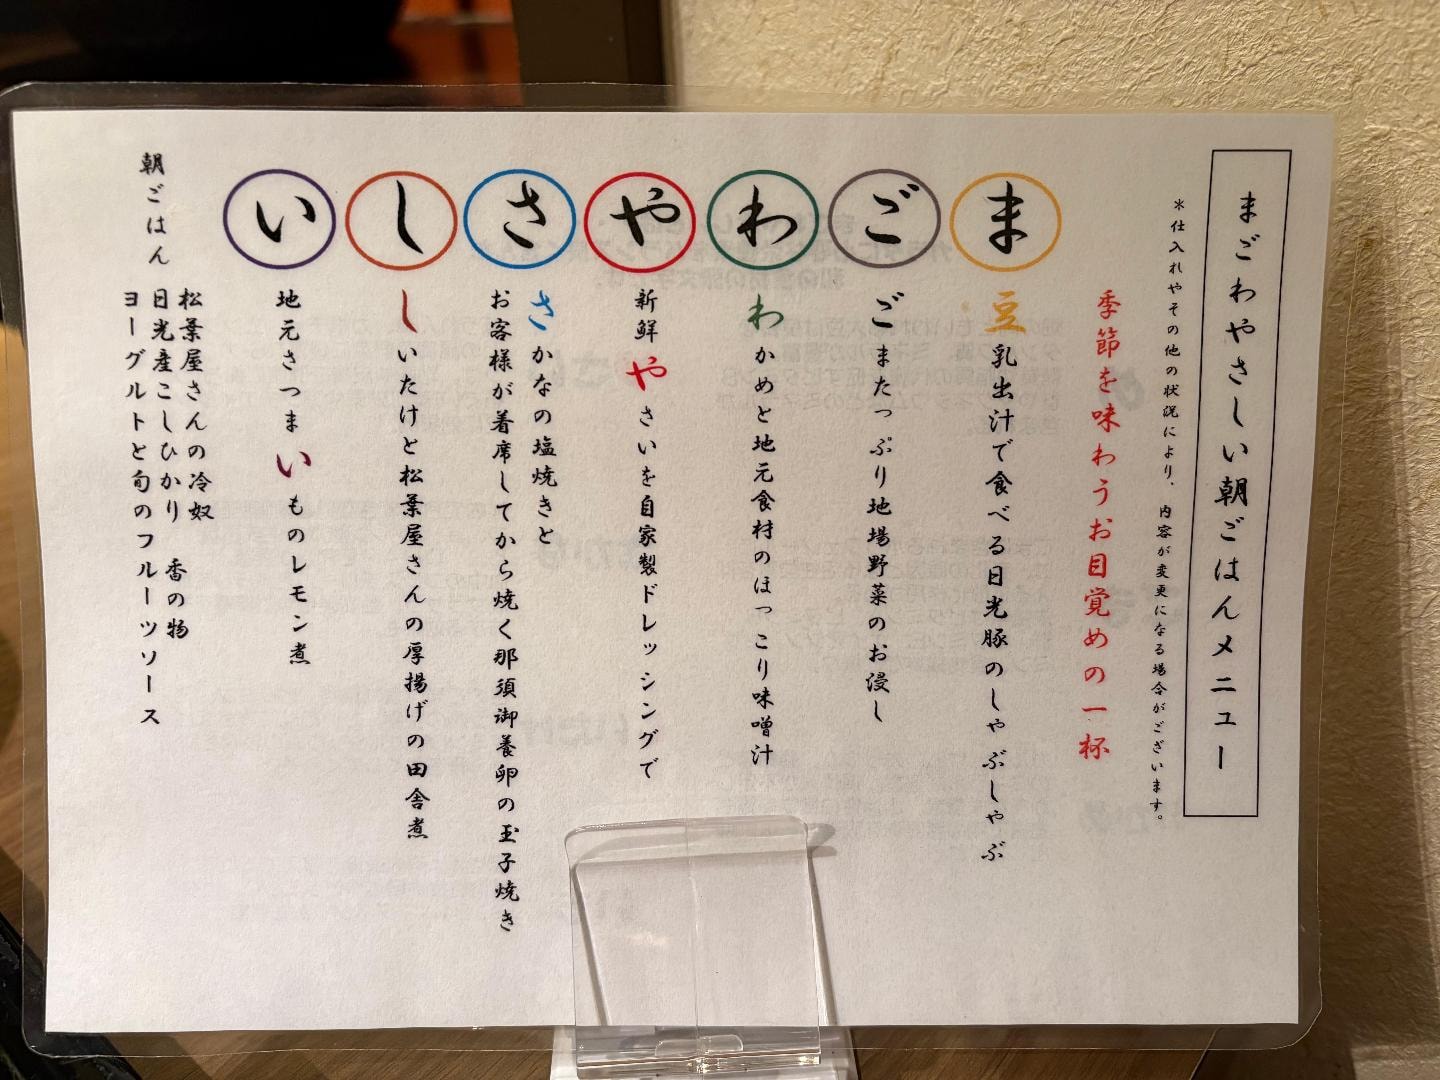 まごわやさしい朝ごはんメニュー
＊仕入れやその他の状況により、内容が変更になる場合がございます。
季節を味わうお目覚めの一杯
ま
豆乳出汁で食べる日光豚のしゃぶしゃぶ
ご
ごまたっぷり地場野菜のお浸し
わ
わかめと地元食材のほっこり味噌汁
や
新鮮やさいを自家製ドレッシングで
さ
さかなの塩焼きと
お客様が着席してから焼く那須御養卵の玉子焼き
し
しいたけと松葉屋さんの厚揚げの田舎煮
い
地元さつまいものレモン煮
朝ごはん
松葉屋さんの冷奴
日光産こしひかり　香の物
ヨーグルトと旬のフルーツソース